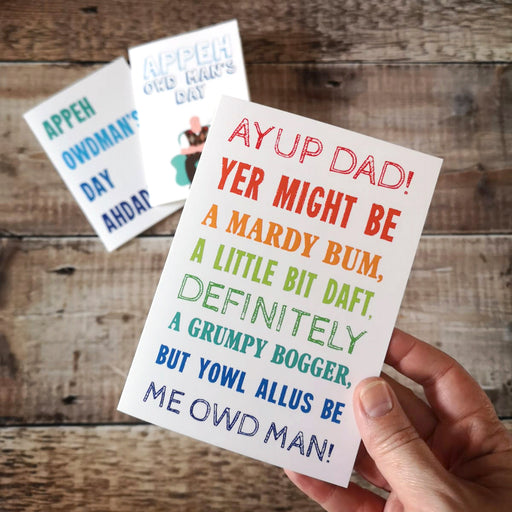 APPEH
OWDMAN'S
DAY
AHDAD
APPEH
OWD MAN'S
DAY
AYUP DAD!
YER MIGHT BE
A MARDY BUM,
A LITTLE BIT DAFT,
DEFINITELY
A GRUMPY BOGGER,
BUT YOWL ALLUS BE
ME OWD MAN!